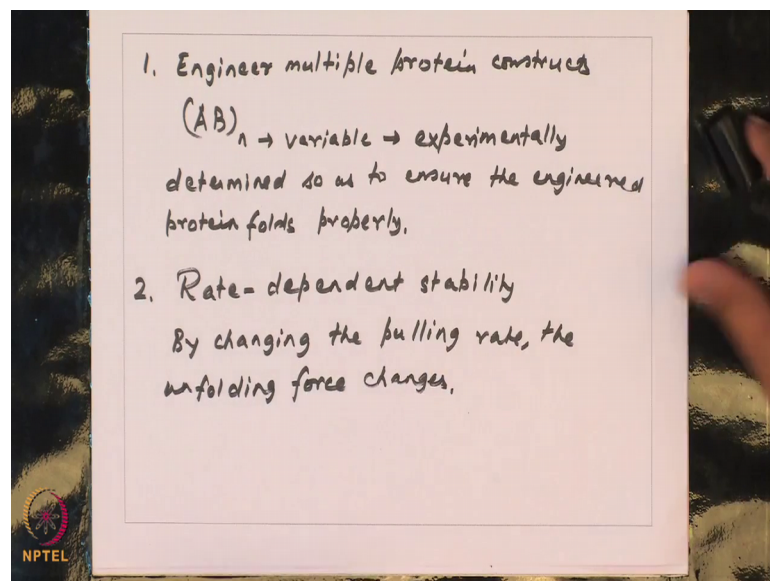 1. Engineer multiple protein constructs
(AB)n → variable → experimentally
determined so as to ensure the engineered
protein folds properly.
2. Rate-dependent stability
By changing the pulling rate, the
unfolding force changes.
NPTEL